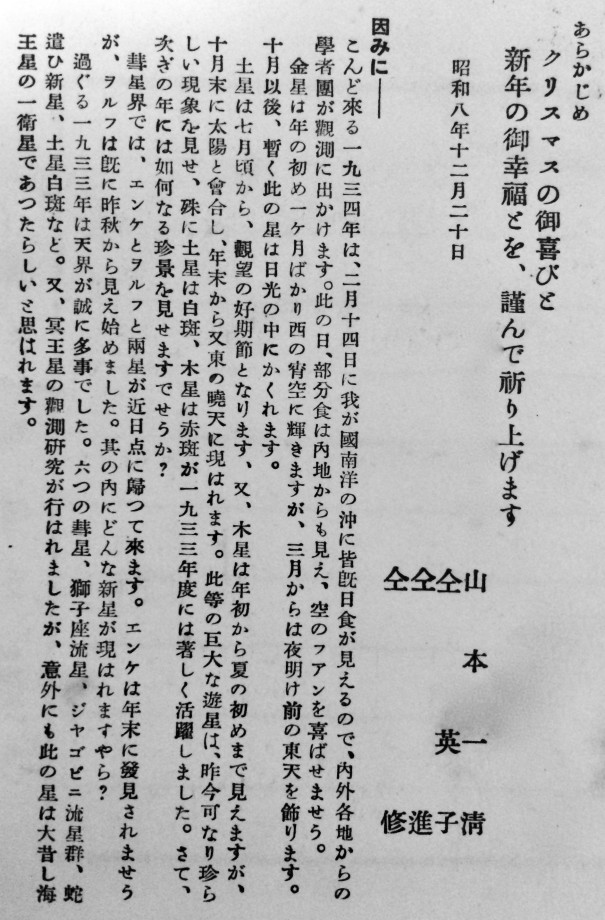 あらかじめ
クリスマスの御喜びと
新年の御幸福とを、謹んで祈り上げます
昭和八年十二月二十日
山本一清
仝英子
仝進
仝修
因みに——
こんど來る一九三四年は、二月十四日に我が國南洋の沖に皆旣日食が見えるので、内外各地からの
學者團が觀測に出かけます。此の日、部分食は内地からも見え、空のフアンを喜ばせませう。
金星は年の初め一ヶ月ばかり西の宵空に輝きますが、三月からは夜明け前の東天を飾ります。
十月以後、暫く此の星は日光の中にかくれます。
土星は七月頃から、觀望の好期節となります、又、木星は年初から夏の初めまで見えますが、
十月末に太陽と會合し、年末から又東の曉天に現はれます。此等の巨大な遊星は、昨今可なり珍ら
しい現象を見せ、殊に土星は白斑、木星は赤斑が一九三三年度には著しく活躍しました。さて、
次ぎの年には如何なる珍景を見せますでせうか？
彗星界では、エンケとヲルフと兩星が近日点に歸つて來ます。エンケは年末に發見されませう
が、ヲルフは旣に昨秋から見え始めました。其の内にどんな新星が現はれますやら？
過ぐる一九三三年は天界が誠に多事でした。六つの彗星、獅子座流星、ジヤゴビニ流星群、蛇
遣ひ新星、土星白斑など。又、冥王星の觀測研究が行はれましたが、意外にも此の星は大昔し海
王星の一衛星であつたらしいと思はれます。